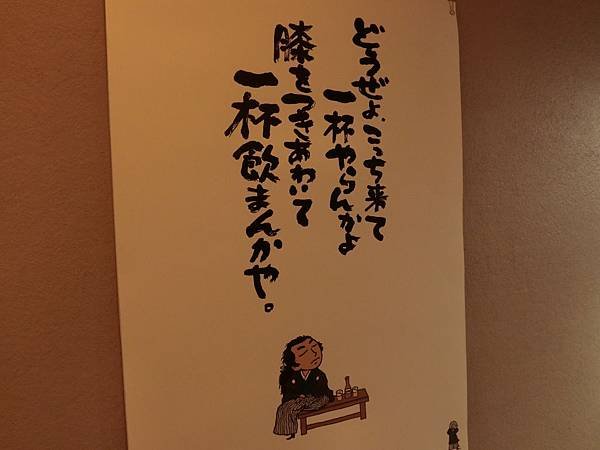 どうぜよ、こっち来て
一杯やらんかよ
膝をつきあわいて
一杯飲まんかや。